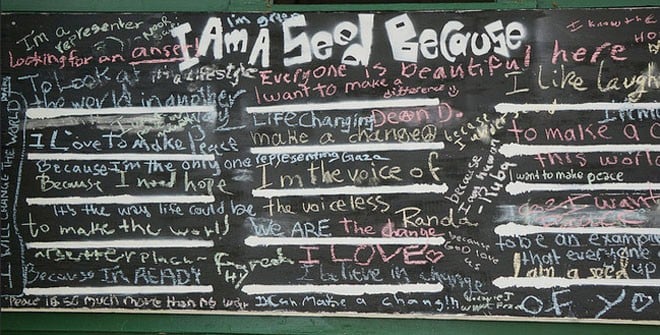 I'm a representer
I'm great
I AM A SEED BECAUSE
I know the
Looking for an answer
It's a lifestyle
Everyone is beautiful here
I want to make a difference
To Look at
the world in another
I like laugh
LiFe Changing Dean D.
make a change
because
I Love to make Peace
to make a c
Because I'm the only one representing Gaza
this world
Because I need hope
I'm the voice of
the voiceless
I want to make peace
because
human
- Nuba
It's the way life could be
to make the world
Randa
We ARE the change
I want
a better place
I LOVE
because
GOD LOVES
to be an example
that everyone
Because I'm READY
I believe in change
I am a seed
up
Peace is so much more than no war
I Can Make a change
because I
OF YO
I WILL CHANGE THE WORLD